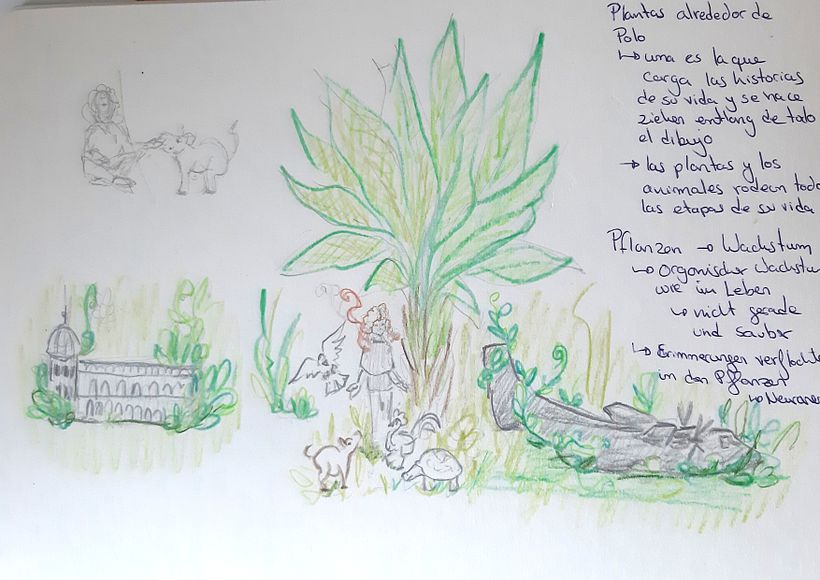 Plantas alrededor de
Polo
↳ una es la que
carga las historias
de su vida y se hace
ziehen entlang de todo
el dibujo
→ las plantas y los
animales rodean toda
las etapas de su vida
Pflanzen → Wachstum
↳ Organischer Wachstum
wie im Leben
↳ nicht gerade
und sauber
↳ Erinnerungen verflochte
in den Pflanzen